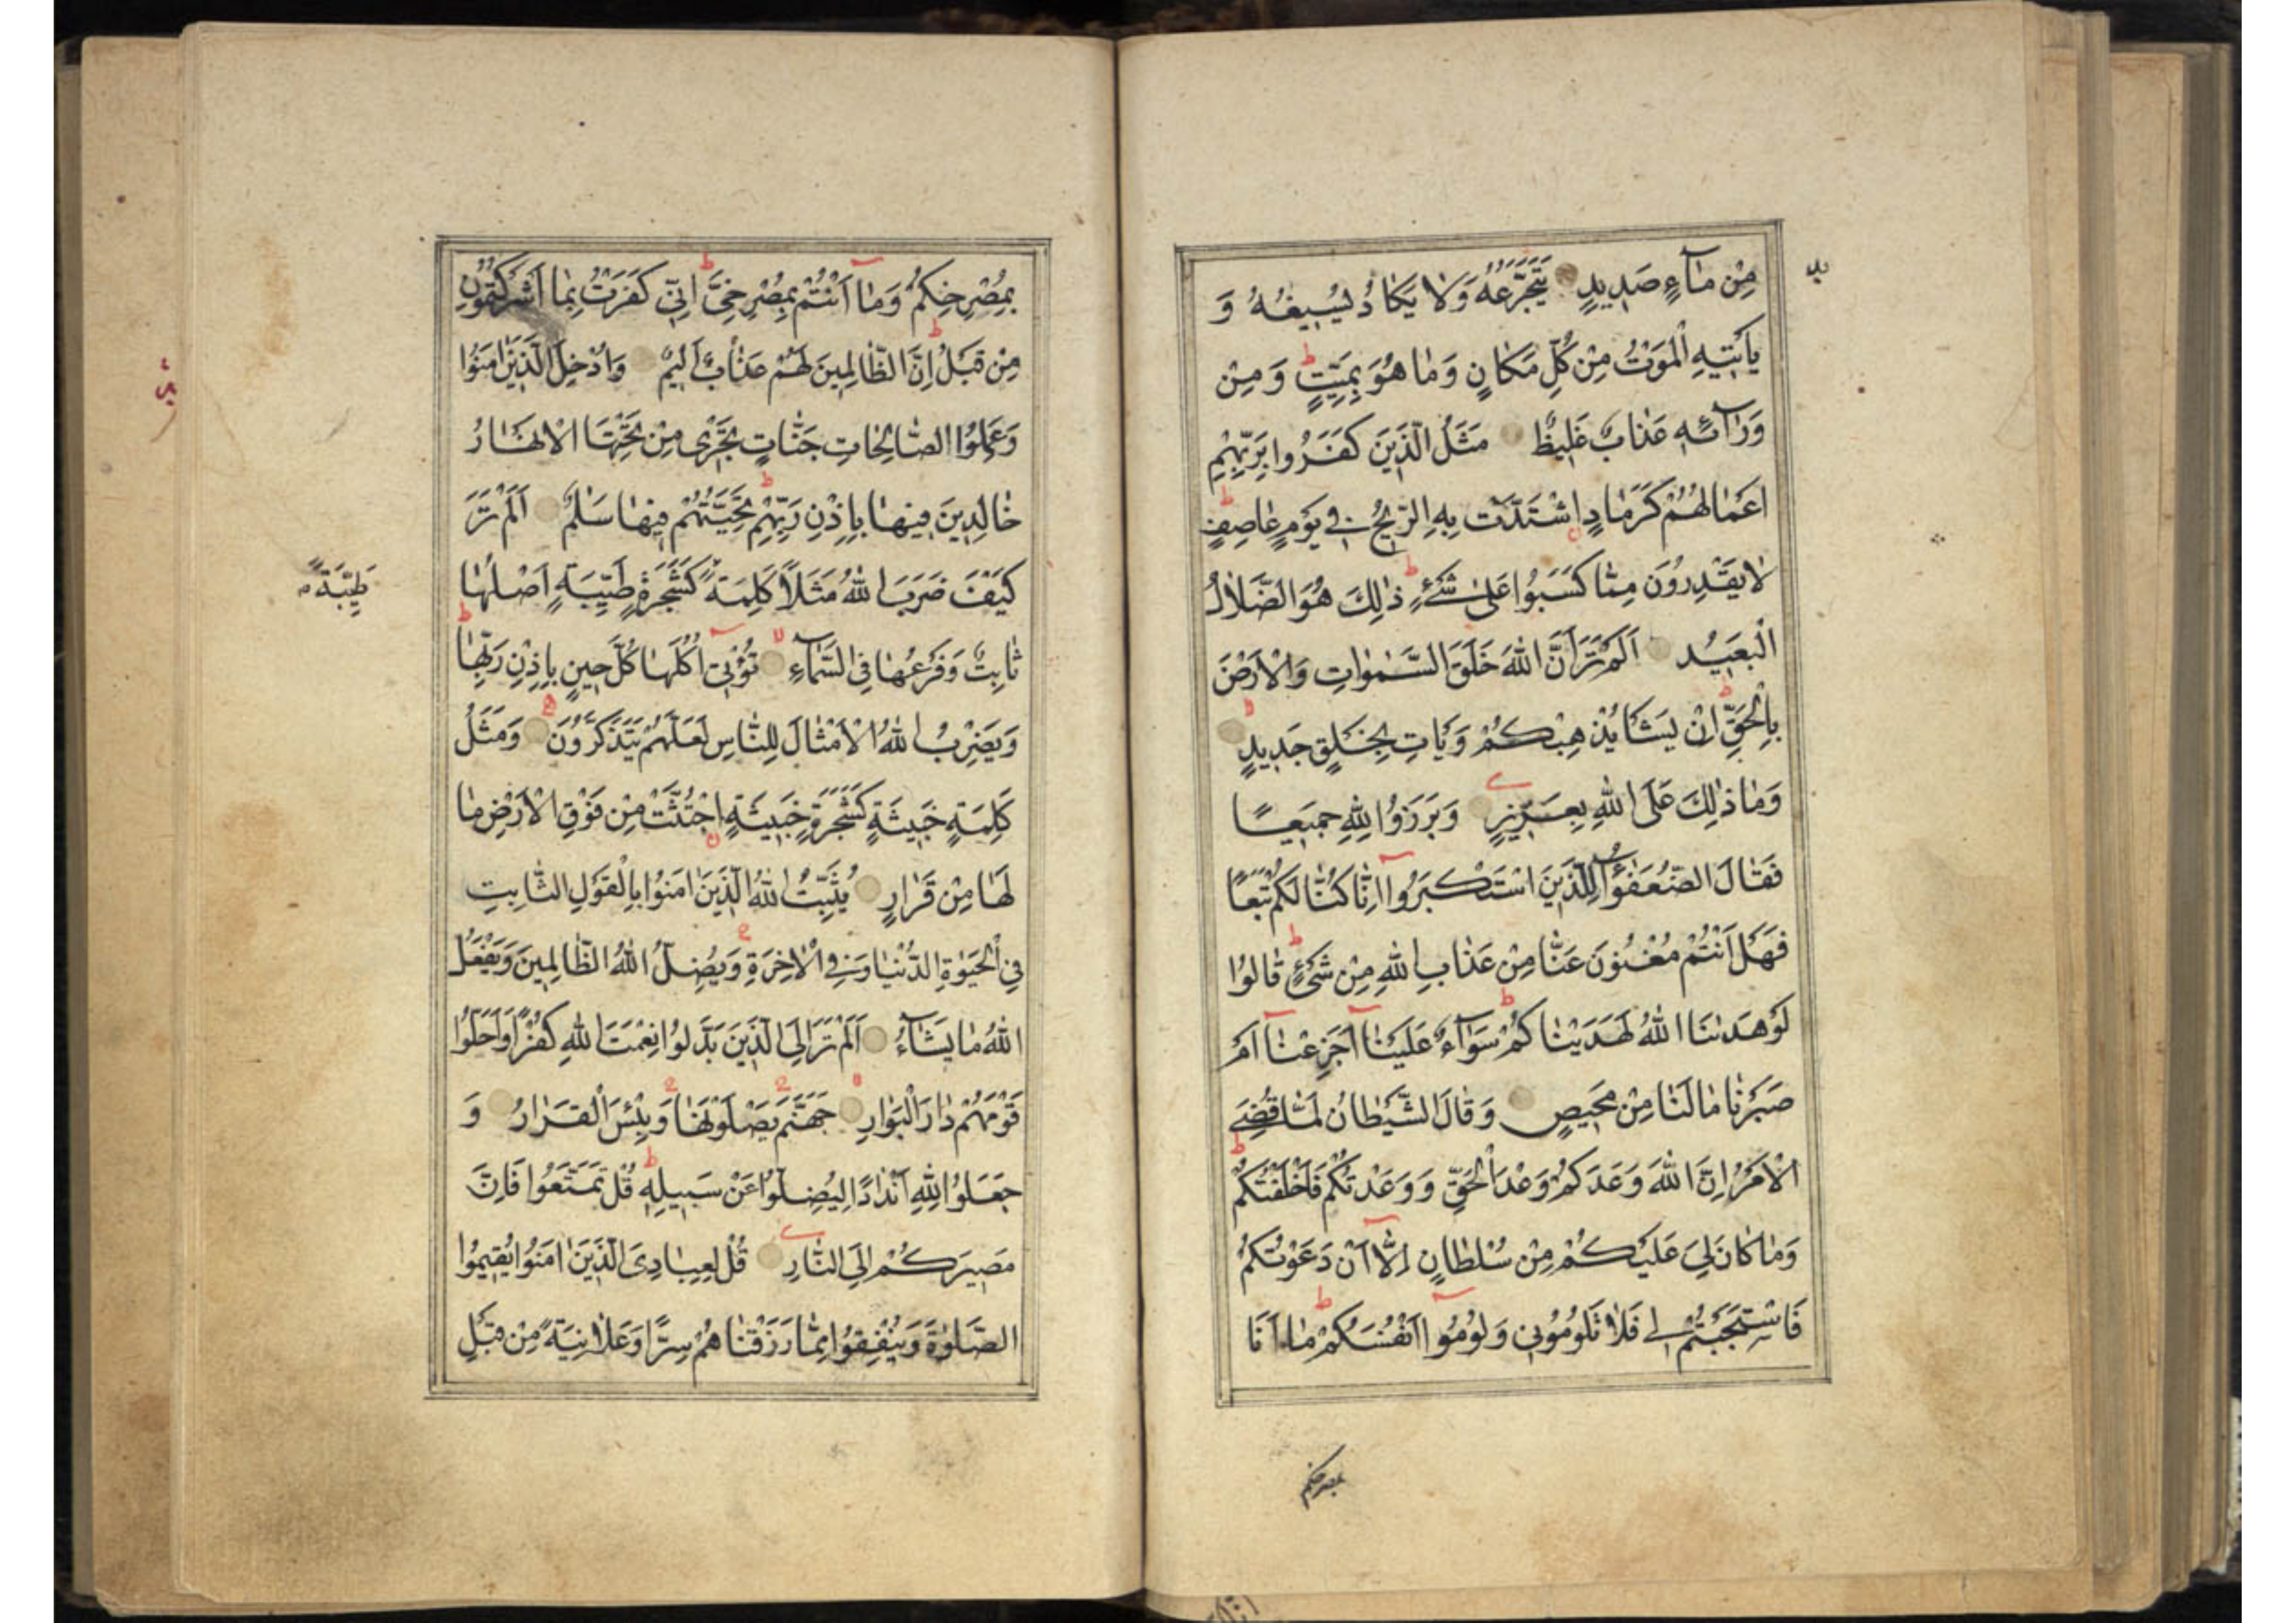 مِنْ مَآءٍ صَدِيدٍ يَتَجَرَّعُهُ وَلَا يَكَادُ يُسِيغُهُ وَ
يَأْتِيهِ الْمَوْتُ مِنْ كُلِّ مَكَانٍ وَمَا هُوَ بِمَيِّتٍ وَمِنْ
وَرَآئِهِ عَذَابٌ غَلِيظٌ مَثَلُ الَّذِينَ كَفَرُوا بِرَبِّهِمْ
اَعْمَالُهُمْ كَرَمَادٍ اشْتَدَّتْ بِهِ الرِّيحُ فِي يَوْمٍ عَاصِفٍ
لَا يَقْدِرُونَ مِمَّا كَسَبُوا عَلَىٰ شَيْءٍ ذٰلِكَ هُوَ الضَّلَالُ
الْبَعِيدُ اَلَمْ تَرَ اَنَّ اللهَ خَلَقَ السَّمٰوَاتِ وَالْاَرْضَ
بِالْحَقِّ اِنْ يَشَأْ يُذْهِبْكُمْ وَيَأْتِ بِخَلْقٍ جَدِيدٍ
وَمَا ذٰلِكَ عَلَى اللهِ بِعَزِيزٍ وَبَرَزُوا لِلّٰهِ جَمِيعًا
فَقَالَ الضُّعَفٰٓؤُا لِلَّذِينَ اسْتَكْبَرُوا اِنَّا كُنَّا لَكُمْ تَبَعًا
فَهَلْ اَنْتُمْ مُغْنُونَ عَنَّا مِنْ عَذَابِ اللهِ مِنْ شَيْءٍ قَالُوا
لَوْ هَدٰىنَا اللهُ لَهَدَيْنَاكُمْ سَوَآءٌ عَلَيْنَآ اَجَزِعْنَآ اَمْ
صَبَرْنَا مَا لَنَا مِنْ مَحِيصٍ وَقَالَ الشَّيْطَانُ لَمَّا قُضِيَ
الْاَمْرُ اِنَّ اللهَ وَعَدَكُمْ وَعْدَ الْحَقِّ وَوَعَدْتُكُمْ فَاَخْلَفْتُكُمْ
وَمَا كَانَ لِيَ عَلَيْكُمْ مِنْ سُلْطَانٍ اِلَّآ اَنْ دَعَوْتُكُمْ
فَاسْتَجَبْتُمْ لِي فَلَا تَلُومُونِي وَلُومُوا اَنْفُسَكُمْ مَا اَنَا
بمصرخكم
بِمُصْرِخِكُمْ وَمَآ اَنْتُمْ بِمُصْرِخِيَّ اِنِّي كَفَرْتُ بِمَا اَشْرَكْتُمُونِ
مِنْ قَبْلُ اِنَّ الظَّالِمِينَ لَهُمْ عَذَابٌ اَلِيمٌ وَاُدْخِلَ الَّذِينَ اٰمَنُوا
وَعَمِلُوا الصَّالِحَاتِ جَنَّاتٍ تَجْرِي مِنْ تَحْتِهَا الْاَنْهَارُ
خَالِدِينَ فِيهَا بِاِذْنِ رَبِّهِمْ تَحِيَّتُهُمْ فِيهَا سَلٰمٌ اَلَمْ تَرَ
كَيْفَ ضَرَبَ اللهُ مَثَلًا كَلِمَةً كَشَجَرَةٍ طَيِّبَةٍ اَصْلُهَا
طَيِّبَةً
ثَابِتٌ وَفَرْعُهَا فِي السَّمَآءِ تُؤْتِي اُكُلَهَا كُلَّ حِينٍ بِاِذْنِ رَبِّهَا
وَيَضْرِبُ اللهُ الْاَمْثَالَ لِلنَّاسِ لَعَلَّهُمْ يَتَذَكَّرُونَ وَمَثَلُ
كَلِمَةٍ خَبِيثَةٍ كَشَجَرَةٍ خَبِيثَةٍ اجْتُثَّتْ مِنْ فَوْقِ الْاَرْضِ مَا
لَهَا مِنْ قَرَارٍ يُثَبِّتُ اللهُ الَّذِينَ اٰمَنُوا بِالْقَوْلِ الثَّابِتِ
فِي الْحَيٰوةِ الدُّنْيَا وَفِي الْاٰخِرَةِ وَيُضِلُّ اللهُ الظَّالِمِينَ وَيَفْعَلُ
اللهُ مَا يَشَآءُ اَلَمْ تَرَ اِلَى الَّذِينَ بَدَّلُوا نِعْمَتَ اللهِ كُفْرًا وَاَحَلُّوا
قَوْمَهُمْ دَارَ الْبَوَارِ جَهَنَّمَ يَصْلَوْنَهَا وَبِئْسَ الْقَرَارُ وَ
جَعَلُوا لِلّٰهِ اَنْدَادًا لِيُضِلُّوا عَنْ سَبِيلِهِ قُلْ تَمَتَّعُوا فَاِنَّ
مَصِيرَكُمْ اِلَى النَّارِ قُلْ لِعِبَادِيَ الَّذِينَ اٰمَنُوا يُقِيمُوا
الصَّلٰوةَ وَيُنْفِقُوا مِمَّا رَزَقْنَاهُمْ سِرًّا وَعَلَانِيَةً مِنْ قَبْلِ